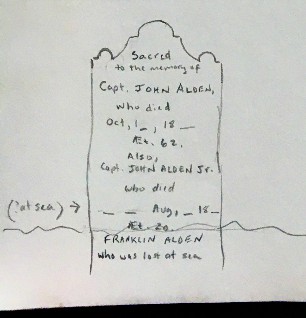 Sacred
to the memory of
Capt. JOHN ALDEN,
who died
Oct, 1_, 18 __
Æt. 62.
Also,
Capt. JOHN ALDEN Jr.
who died
(? at sea) → __ __ Aug, __ 18__
Æt. 20.
FRANKLIN ALDEN
who was lost at sea